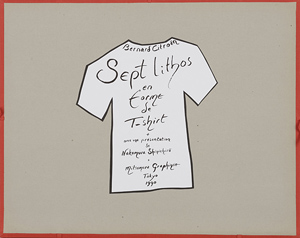 Bernard Citroën
Sept lithos
en
Forme
de
T-shirt
&
avec une présentation
de
Nakamura
&
Mitsumura Graphique
Tokyo
1990